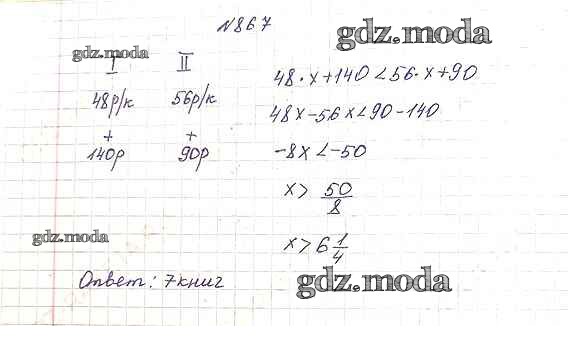 №867
gdz.moda
gdz.moda
I II
48р/к 56р/к
+ +
140р 90р
48·x+140<56·x+90
48x-56x<90-140
-8x<-50
x> 50/8
x>6 1/4
gdz.moda
gdz.moda
Ответ: 7книг